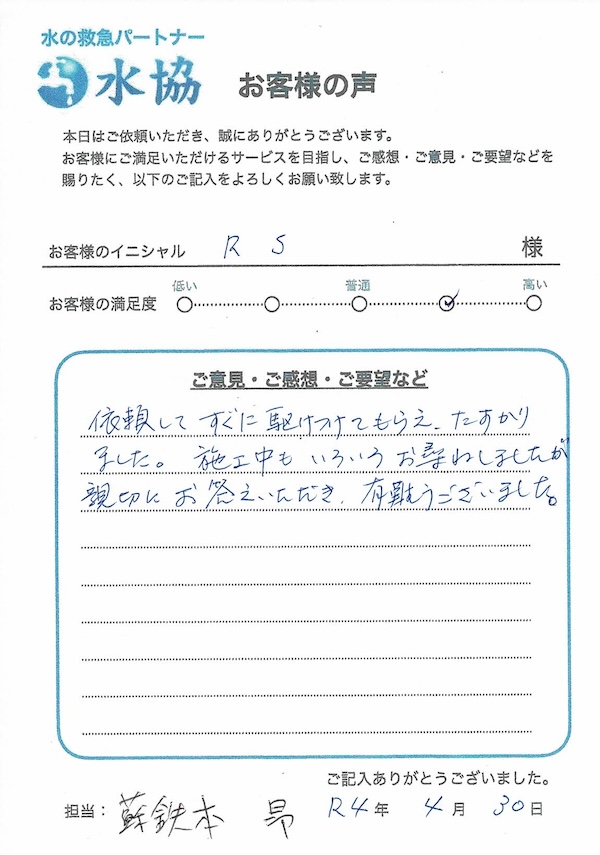 水の救急パートナー
水協 お客様の声
本日はご依頼いただき、誠にありがとうございます。
お客様にご満足いただけるサービスを目指し、ご感想・ご意見・ご要望などを
賜りたく、以下のご記入をよろしくお願い致します。
お客様のイニシャル R S 様
低い 普通 高い
お客様の満足度
ご意見・ご感想・ご要望など
依頼して すぐに駆けつけてもらえ、たすかり
ました。 施工中も いろいろ お尋ねしましたが
親切に お答えいただき、有難うございました。
ご記入ありがとうございました。
担当: 蘇鉄本 昂 R4年 4月 30日